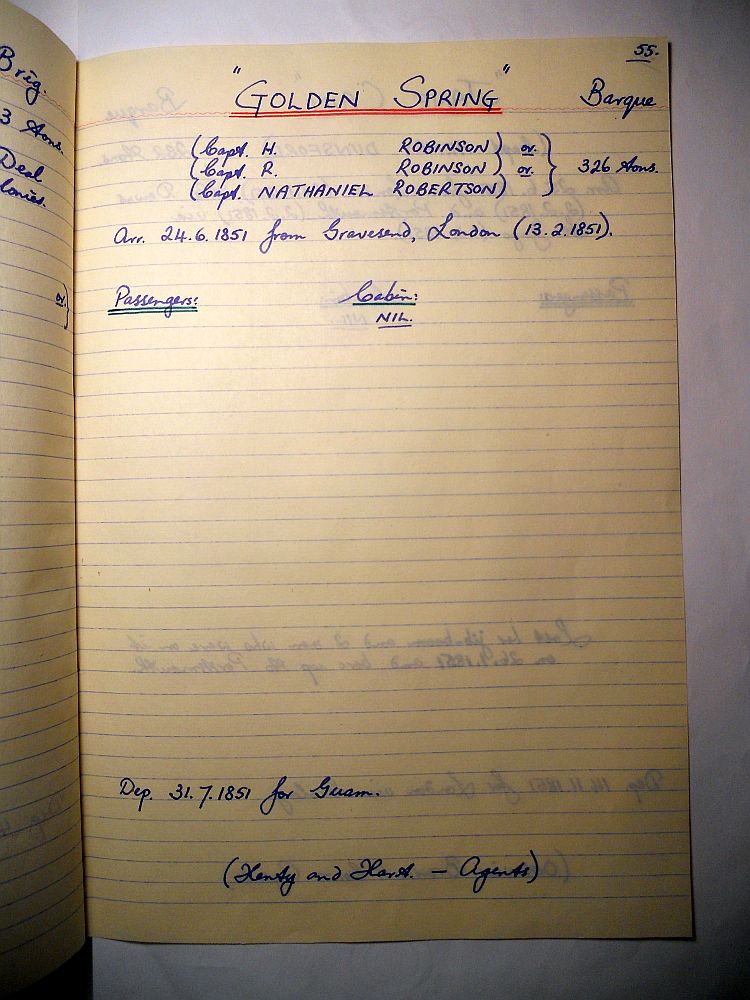 Brig.
3 tons.
Deal
lonies.
or.}
55.
"GOLDEN SPRING" Barque
(Capt. H. ROBINSON) or.
(Capt. R. ROBINSON) or. } 326 tons.
(Capt. NATHANIEL ROBERTSON)
Arr. 24.6.1851 from Gravesend, London (13.2.1851).
Passengers: Cabin:
NIL.
Dep. 31.7.1851 for Guam.
(Henty and Hart. — Agents)